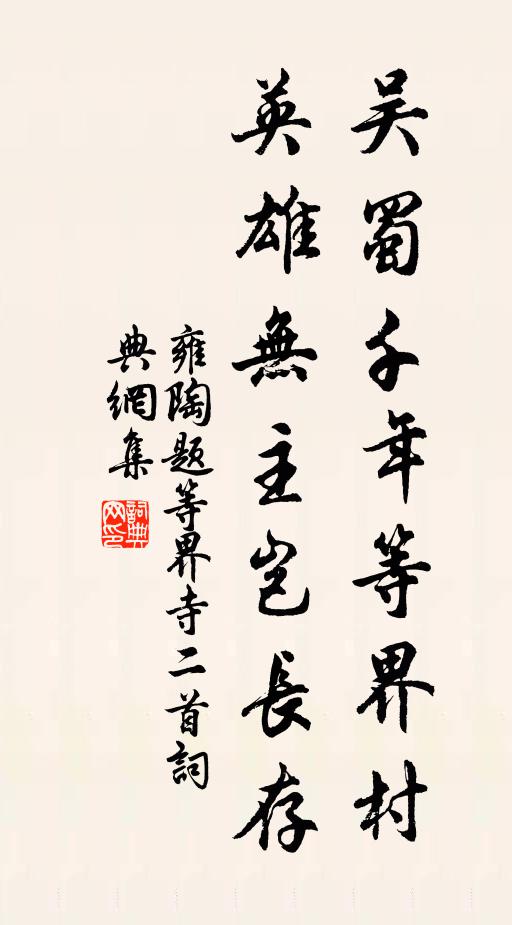 吴蜀千年等界村
英雄無主岂長存
雍陶题等界寺二首詞
典網集
詞典网印